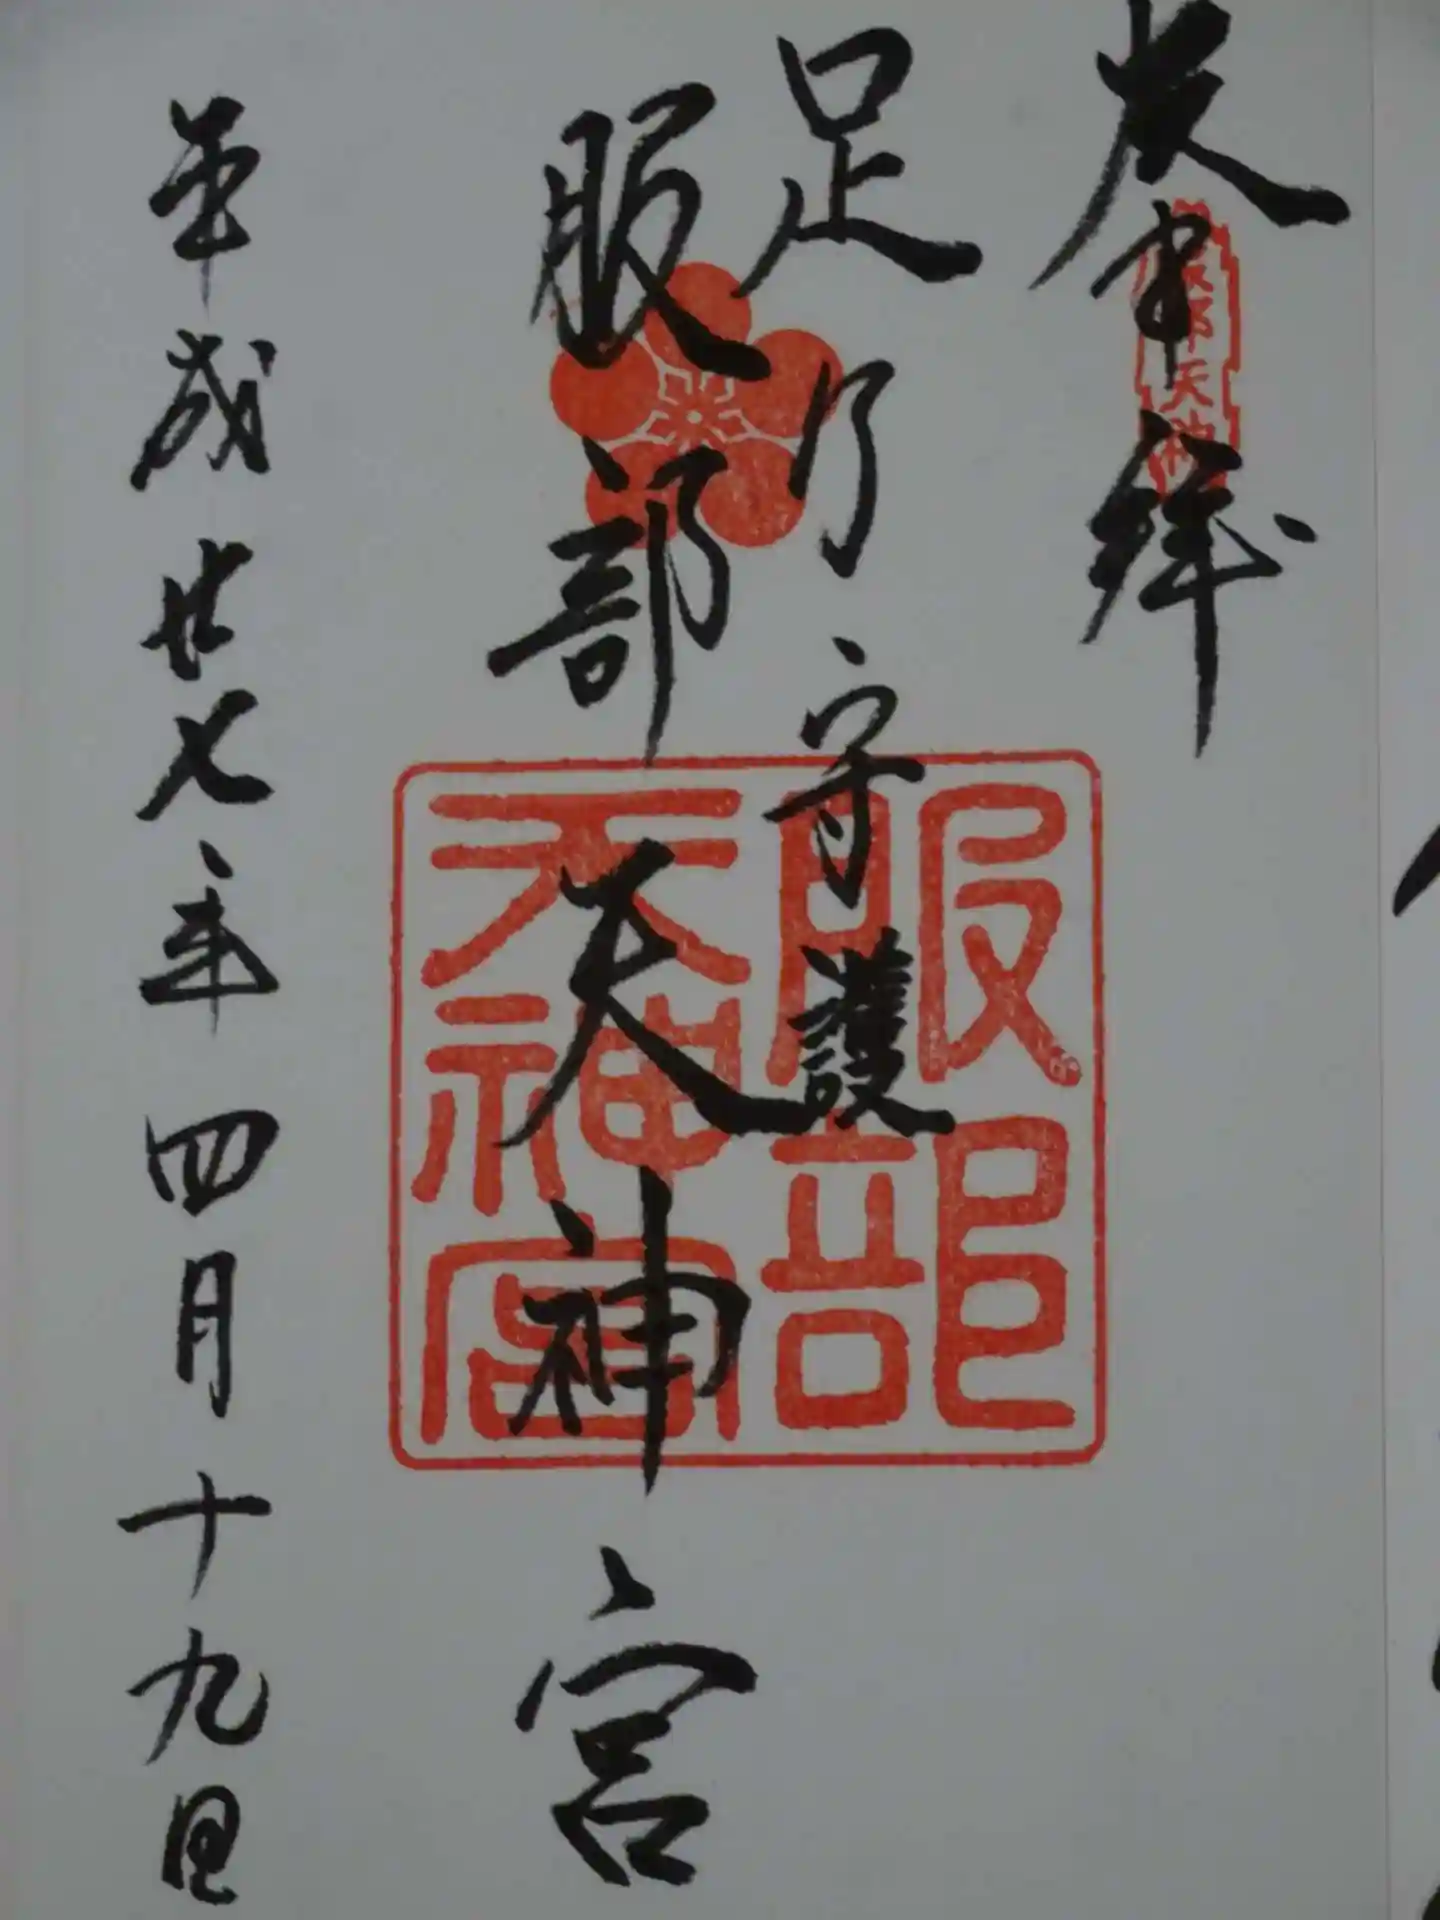 奉拝
足乃守護
服部天神宮
平成廿七年四月十九日
服部天神
服部
天神宮